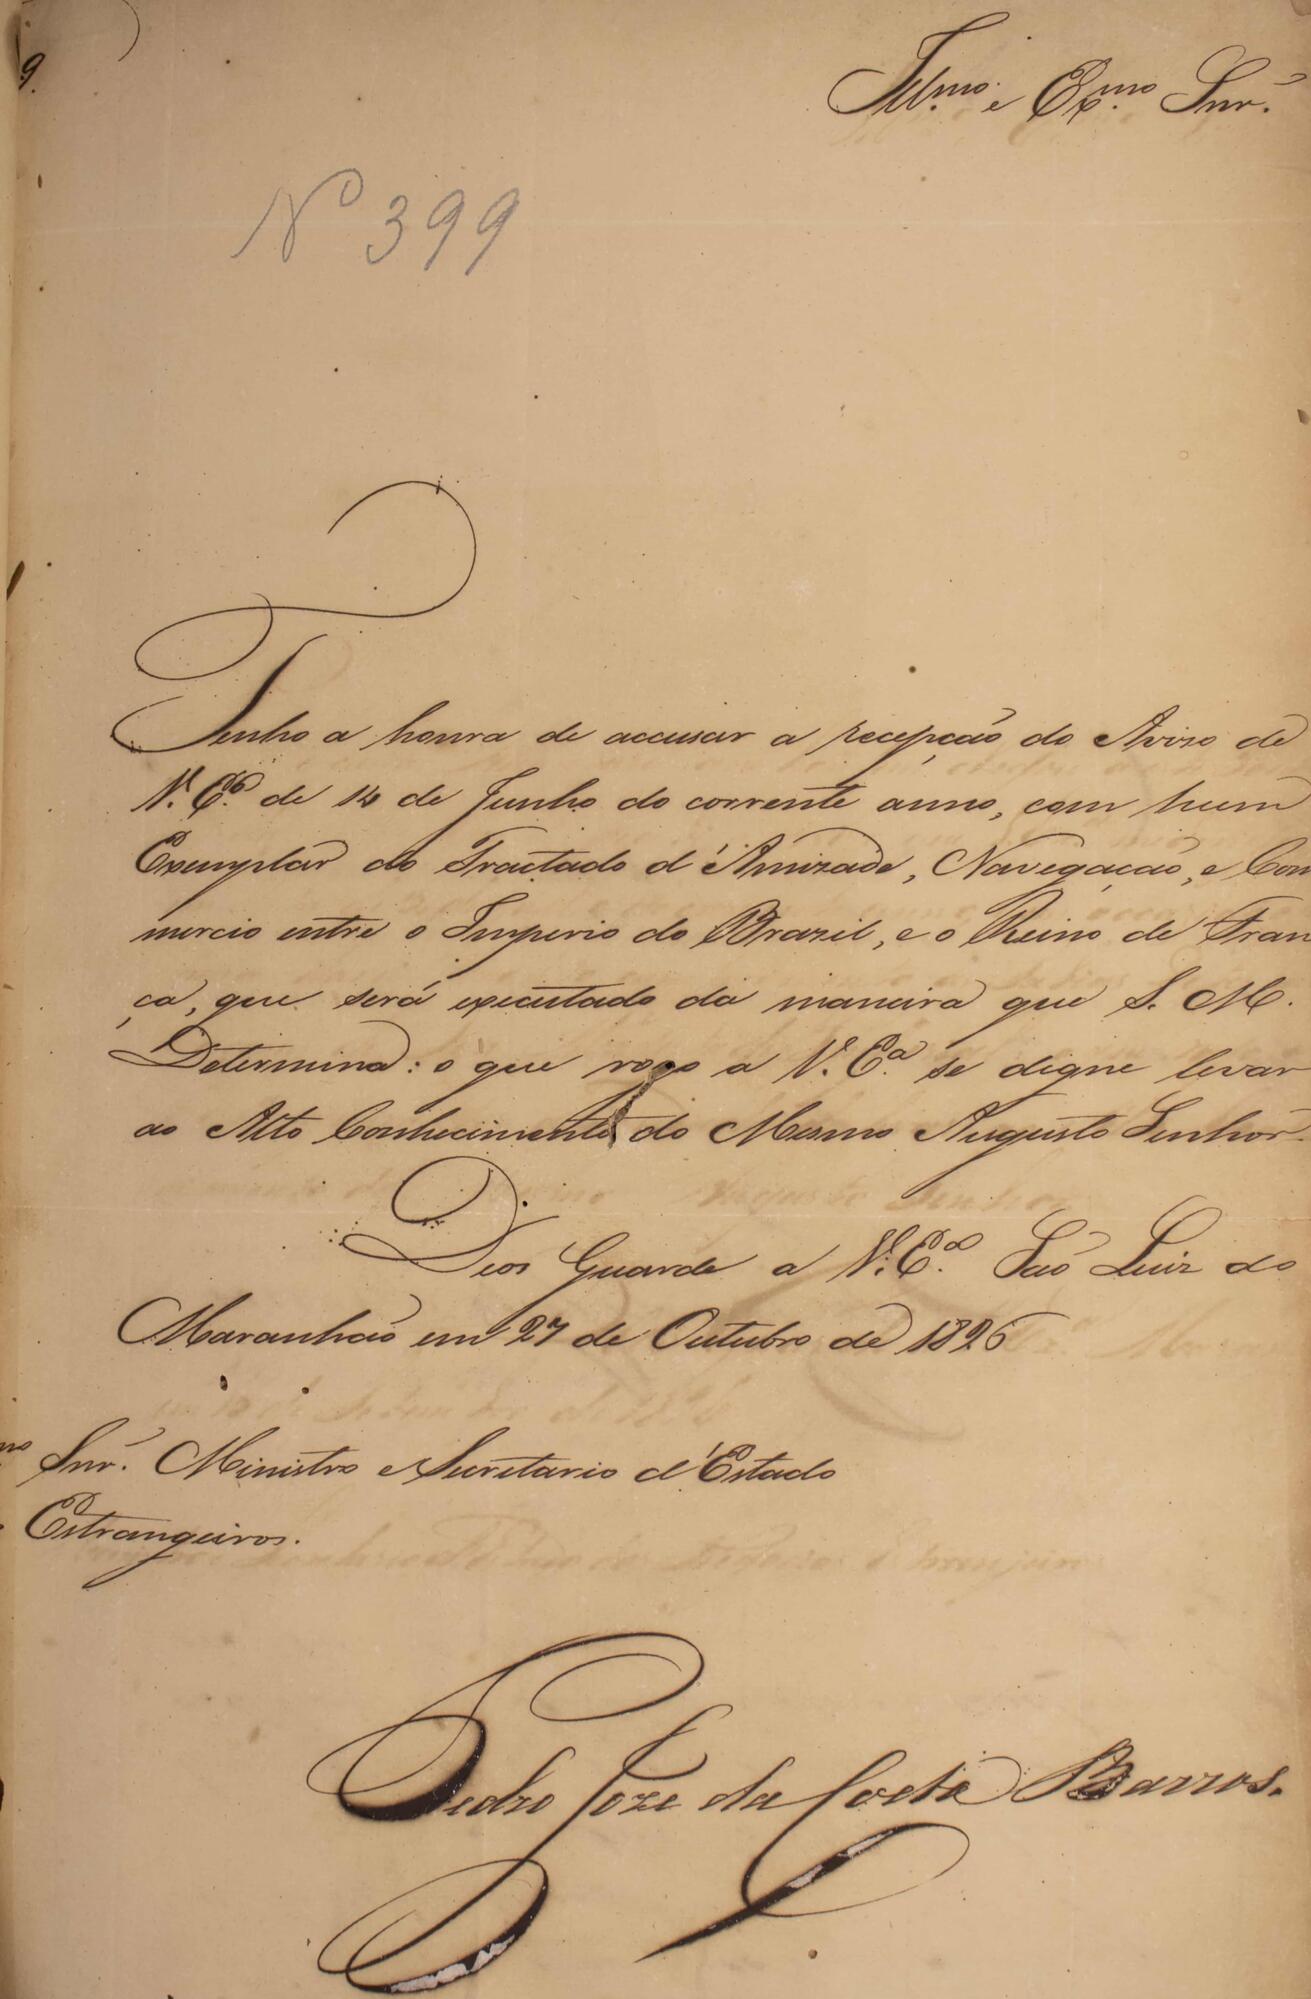 9.
Illmo. e Exmo. Snr.
No 399
Tenho a honra de accusar a recepção do Aviso de
V. Exa. de 14 de Junho do corrente anno, com hum
Exemplar do Tractado d'Amizade, Navegação, e Com
mercio entre o Imperio do Brazil, e o Reino de Fran
ça, que será executado da maneira que S. M.
Determina: o que rogo a V. Exa. se digne levar
ao Alto Conhecimento do Mesmo Augusto Senhor.
Deos Guarde a V. Exa. São Luiz do
Maranhão em 27 de Outubro de 1826
mo Snr. Ministro e Secretario d'Estado
Estrangeiros.
Pedro Joze da Costa Barros.